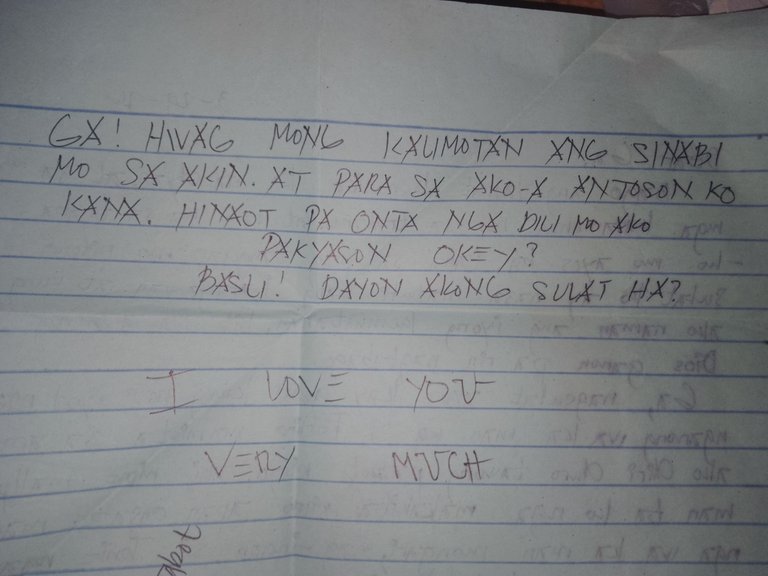 GA! HWAG MONG KALIMOTAN ANG SINABI
MO SA AKIN. AT PARA SA AKO-A ANTOSON KO
KANA. HINAOT PA ONTA NGA DILI MO AKO
PAKYASON OKEY?
BASLI! DAYON AKONG SULAT HA?
I LOVE YOU
VERY MUCH